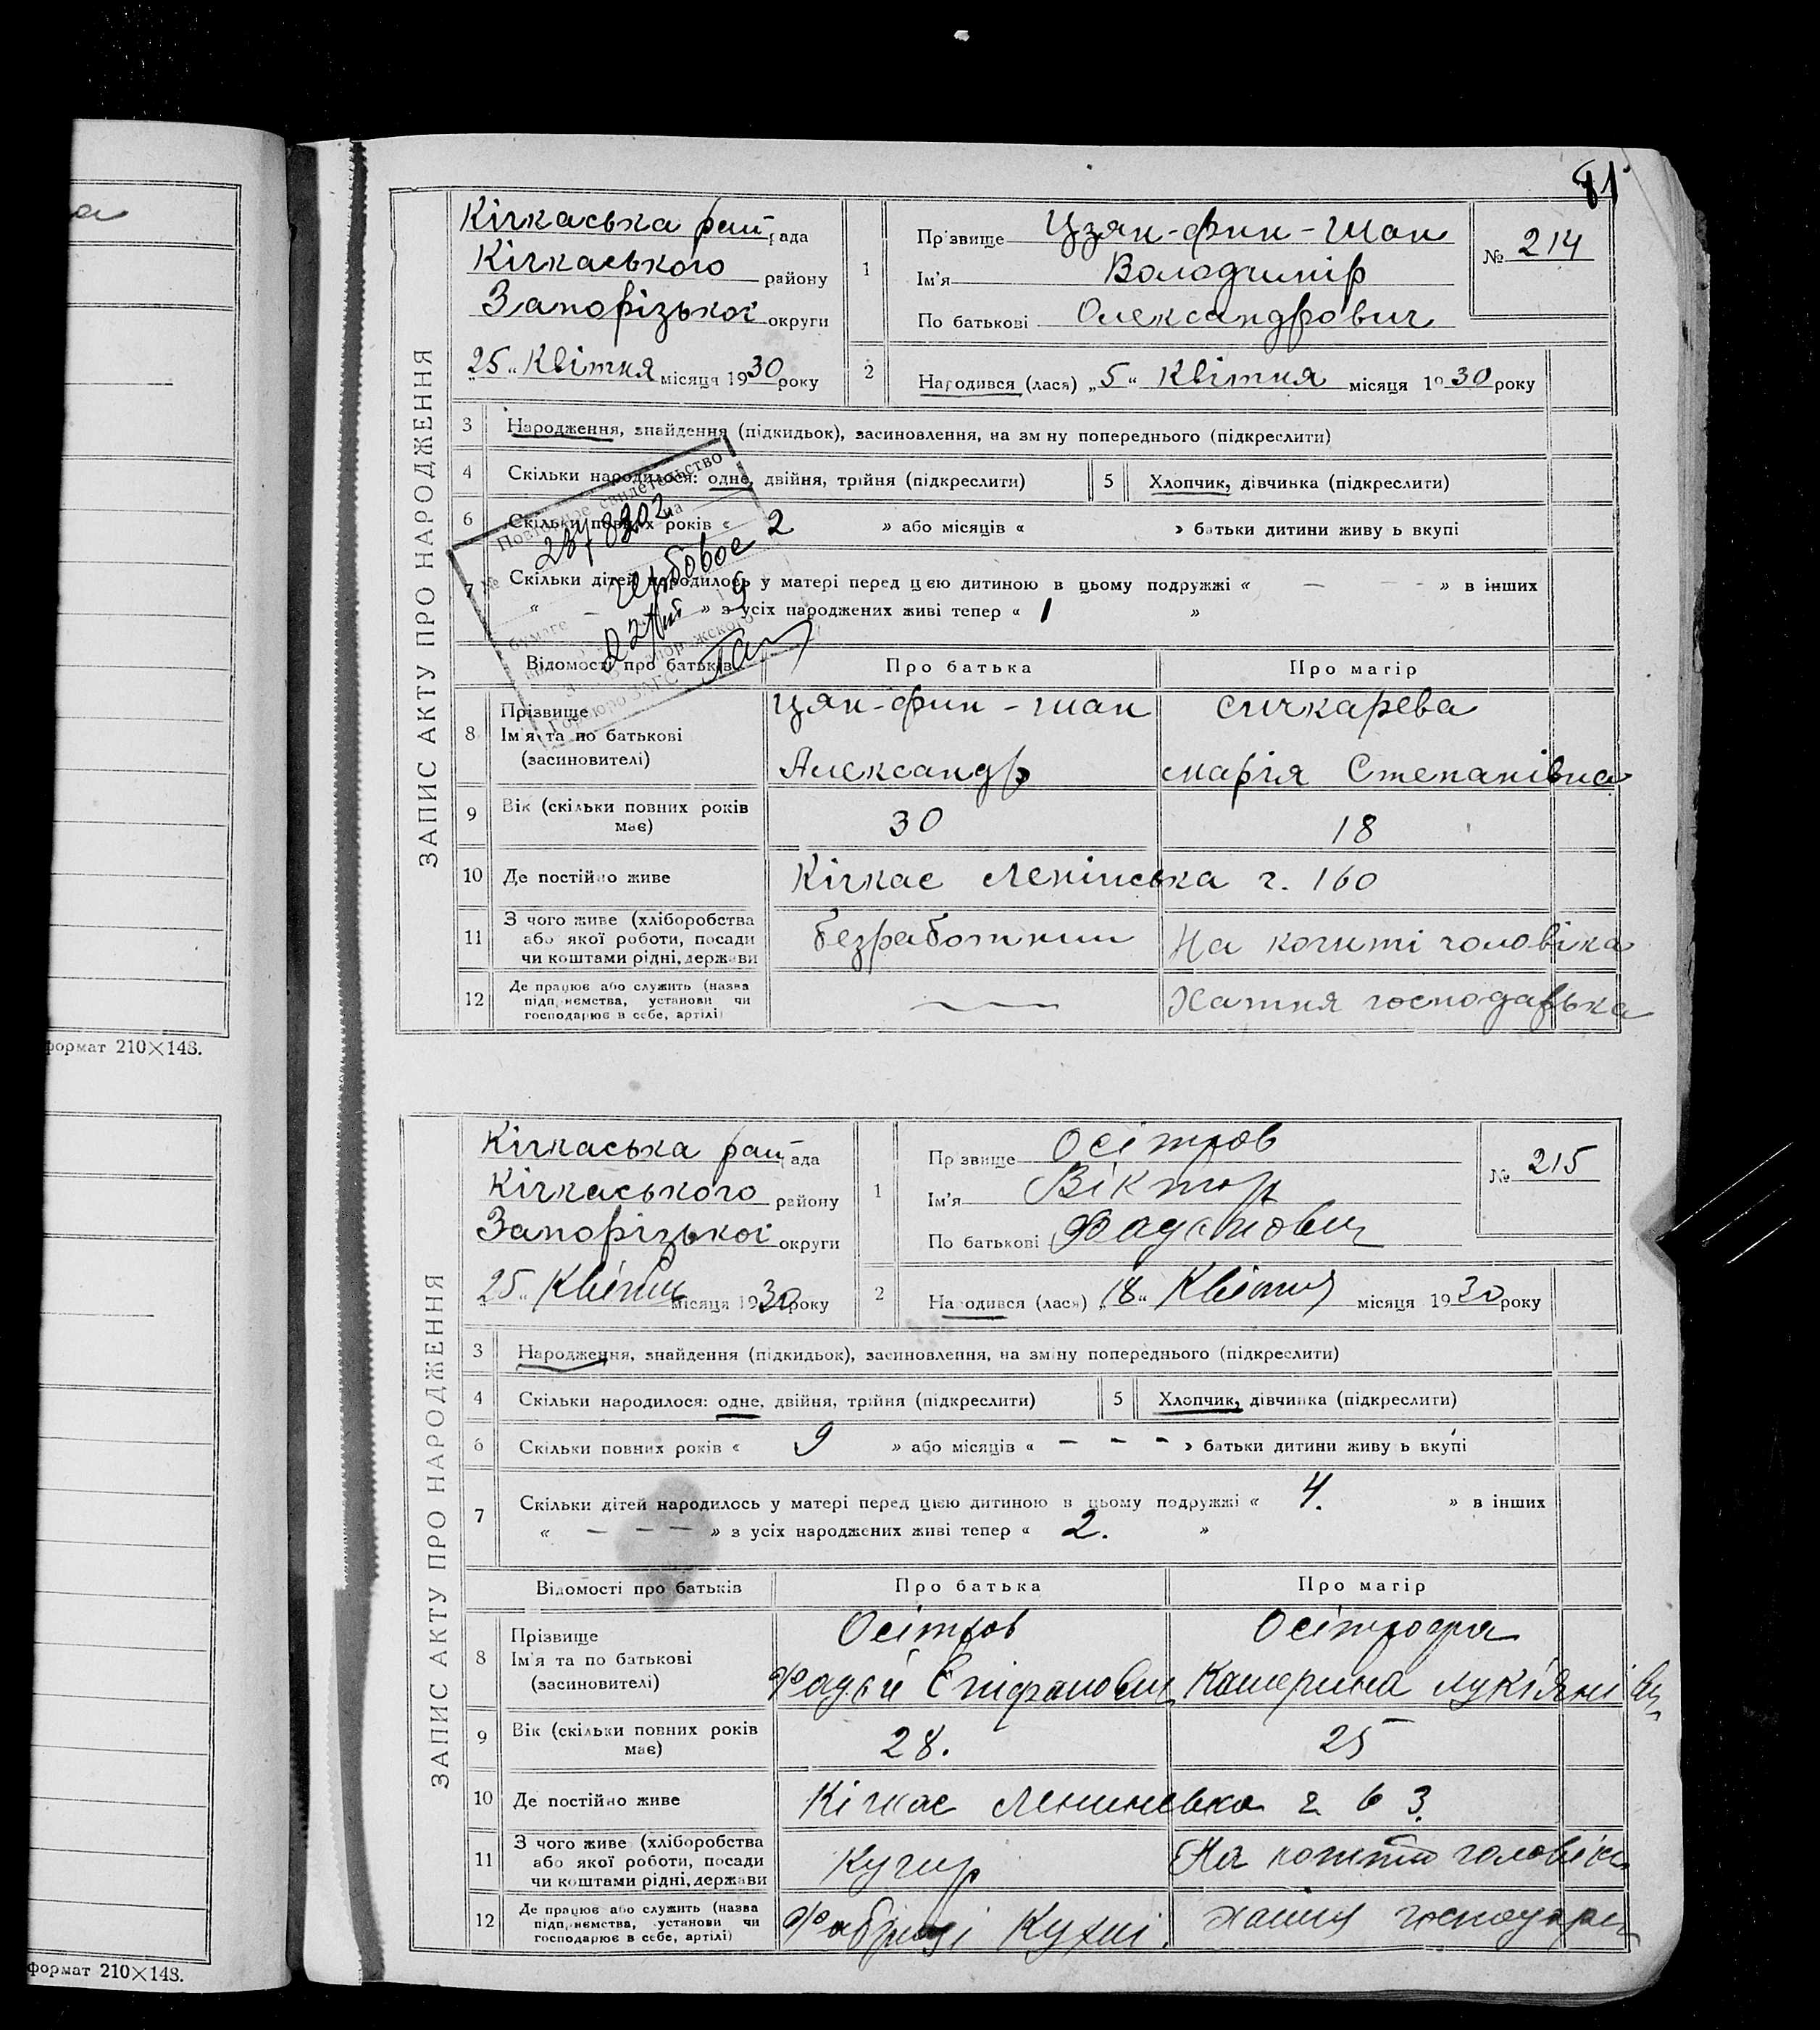 а
формат 210×148.
формат 210×148.
81
ЗАПИС АКТУ ПРО НАРОДЖЕННЯ
Кічкаська рай рада
Кічкаського району
Запорізької округи
„25“ Квітня місяця 1930 року
1
Прізвище Цзян-фин-шан
Ім'я Володимір
По батькові Олександрович
№ 214
2
Народився (лася) „5“ Квітня місяця 1930 року
3 Народження, знайдення (підкидьок), засиновлення, на зміну попереднього (підкреслити)
4 Скільки народилося: одне, двійня, трійня (підкреслити)
5 Хлопчик, дівчинка (підкреслити)
6 Скільки повних років « 2 » або місяців « » батьки дитини живуть вкупі
7 Скільки дітей народилось у матері перед цією дитиною в цьому подружжі « — - - » в інших
« — » з усіх народжених живі тепер « 1 »
Повторное свидетельство
№
гербовое
бумаге
Горбюро ЗАГС
Відомості про батьків Про батька Про матір
8 Прізвище
Ім'я та по батькові
(засиновителі)
Цян-фин-шан
Александр
Сичкарева
Марія Степанівна
9 Вік (скільки повних років
має)
30 18
10 Де постійно живе Кічкас Ленінська ч. 160
11 З чого живе (хліборобства
або якої роботи, посади
чи коштами рідні, держави
безработний
На кошті чоловіка
12 Де працює або служить (назва
підприємства, установи чи
господарює в себе, артілі)
—
Хатня господарька
ЗАПИС АКТУ ПРО НАРОДЖЕННЯ
Кічкаська рай рада
Кічкаського району
Запорізької округи
„25“ Квітня місяця 1930 року
1
Прізвище Осітров
Ім'я Віктор
По батькові Фадейович
№ 215
2
Народився (лася) „18“ Квітня місяця 1930 року
3 Народження, знайдення (підкидьок), засиновлення, на зміну попереднього (підкреслити)
4 Скільки народилося: одне, двійня, трійня (підкреслити)
5 Хлопчик, дівчинка (підкреслити)
6 Скільки повних років « 9 » або місяців « - - - » батьки дитини живуть вкупі
7 Скільки дітей народилось у матері перед цією дитиною в цьому подружжі « 4. » в інших
« - - - » з усіх народжених живі тепер « 2. »
Відомості про батьків Про батька Про матір
8 Прізвище
Ім'я та по батькові
(засиновителі)
Осітров
Фадей Єпіфанович
Осітрова
Катерина Лук'янівн
9 Вік (скільки повних років
має)
28. 25
10 Де постійно живе Кічкас Ленинська ч 63.
11 З чого живе (хліборобства
або якої роботи, посади
чи коштами рідні, держави
Кучир
На кошти чоловіка
12 Де працює або служить (назва
підприємства, установи чи
господарює в себе, артілі)
Фабриці Кухні.
Хатня господарк